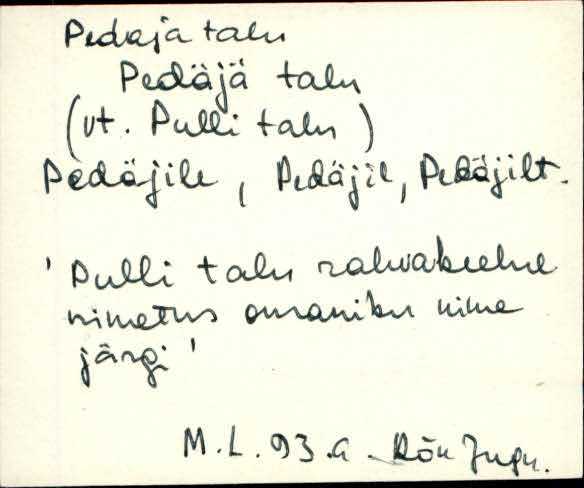 Pedaja talu
Pedäjä talu
(vt. Pulli talu)
Pedäjile, Pedäjil, Pedäjilt.
'Pulli talu rahvakeelne
nimetus omaniku nime
järgi'
M.L. 93.a. Rõu